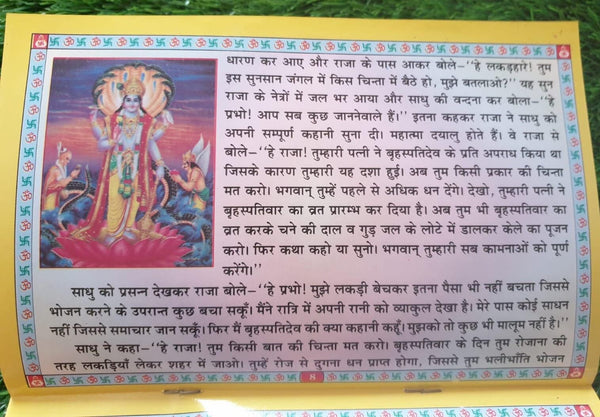 धारण कर आए और राजा के पास आकर बोले–‘‘हे लकड़हारे! तुम
इस सुनसान जंगल में किस चिन्ता में बैठे हो, मुझे बतलाओ?’’ यह सुन
राजा के नेत्रों में जल भर आया और साधु की वन्दना कर बोला–‘‘हे
प्रभो! आप सब कुछ जाननेवाले हैं।’’ इतना कहकर राजा ने साधु को
अपनी सम्पूर्ण कहानी सुना दी। महात्मा दयालु होते हैं। वे राजा से
बोले–‘‘हे राजा! तुम्हारी पत्नी ने बृहस्पतिदेव के प्रति अपराध किया था
जिसके कारण तुम्हारी यह दशा हुई। अब तुम किसी प्रकार की चिन्ता
मत करो। भगवान् तुम्हें पहले से अधिक धन देंगे। देखो, तुम्हारी पत्नी ने
बृहस्पतिवार का व्रत प्रारम्भ कर दिया है। अब तुम भी बृहस्पतिवार का
व्रत करके चने की दाल व गुड़ जल के लोटे में डालकर केले का पूजन
करो। फिर कथा कहो या सुनो। भगवान् तुम्हारी सब कामनाओं को पूर्ण
करेंगे।’’
साधु को प्रसन्न देखकर राजा बोले–‘‘हे प्रभो! मुझे लकड़ी बेचकर इतना पैसा भी नहीं बचता जिससे
भोजन करने के उपरान्त कुछ बचा सकूँ। मैंने रात्रि में अपनी रानी को व्याकुल देखा है। मेरे पास कोई साधन
नहीं जिससे समाचार जान सकूँ। फिर मैं बृहस्पतिदेव की क्या कहानी कहूँ। मुझको तो कुछ भी मालूम नहीं है।’’
साधु ने कहा–‘‘हे राजा! तुम किसी बात की चिन्ता मत करो। बृहस्पतिवार के दिन तुम रोजाना की
तरह लकड़ियाँ लेकर शहर में जाओ। तुम्हें रोज से दुगना धन प्राप्त होगा, जिससे तुम भलीभाँति भोजन
8